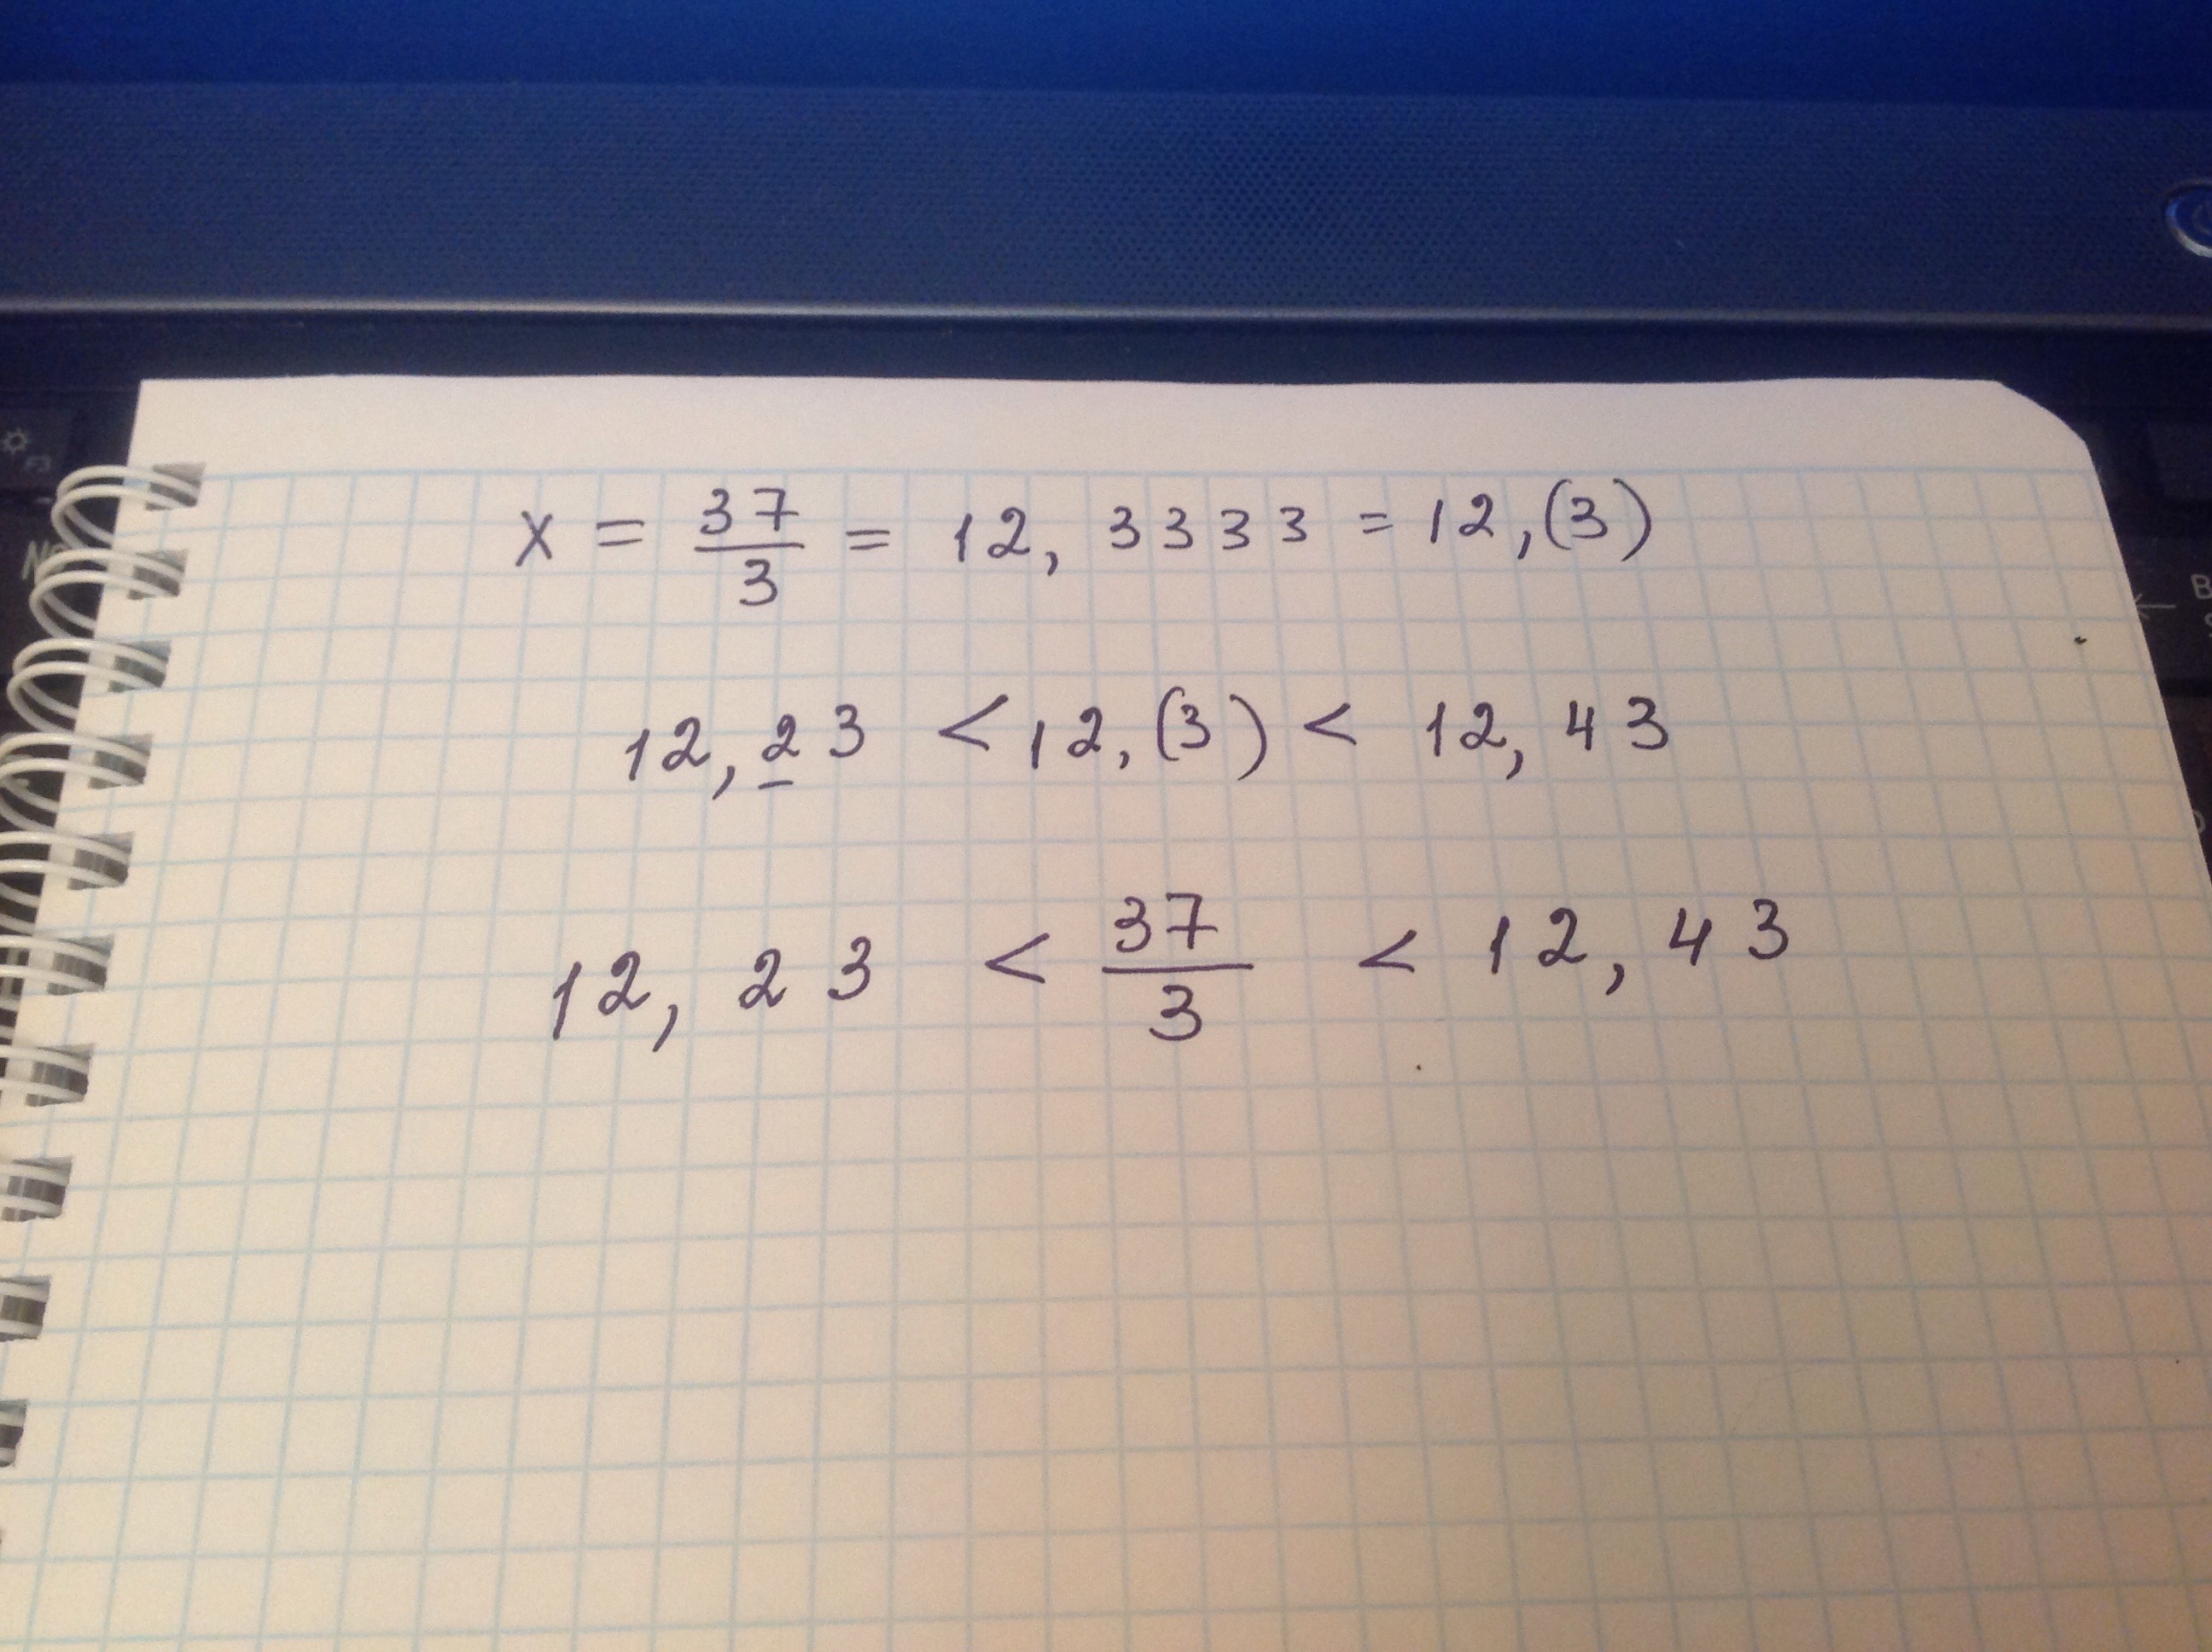 x = 37/3 = 12, 3333 = 12,(3)
12,23 < 12,(3) < 12,43
12,23 < 37/3 < 12,43
F3